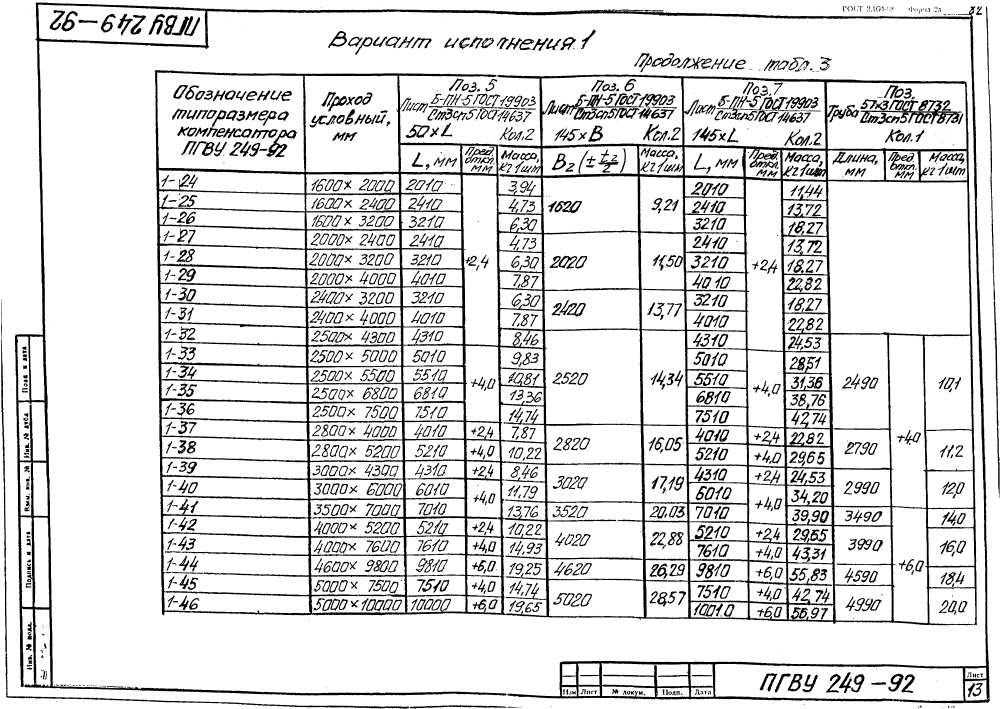 ГОСТ 2.104-68 Форма 2а
82
ПГВУ 249-92
Вариант исполнения 1
Продолжение табл. 3
Обозначение типоразмера компенсатора ПГВУ 249-92 | Проход условный, мм | Поз. 5 Лист Б-ПН-5 ГОСТ 19903 / Ст3сп5 ГОСТ 14637 50×L Кол. 2 | Поз. 6 Лист Б-ПН-5 ГОСТ 19903 / Ст3сп5 ГОСТ 14637 145×B Кол. 2 | Поз. 7 Лист Б-ПН-5 ГОСТ 19903 / Ст3сп5 ГОСТ 14637 145×L Кол. 2 | Поз. Труба 57×3 ГОСТ 8732 / Ст3сп5 ГОСТ 8731 Кол. 1
L, мм | Пред. откл. мм | Масса, кг 1 шт | B2 (± t2/2) | Масса, кг 1 шт | L, мм | Пред. откл. мм | Масса, кг 1 шт | Длина, мм | Пред. откл. мм | Масса, кг 1 шт
1-24 1600×2000 2010 +2,4 3,94 1620 9,21 2010 +2,4 11,44
1-25 1600×2400 2410 4,73 2410 13,72
1-26 1600×3200 3210 6,30 3210 18,27
1-27 2000×2400 2410 4,73 2020 11,50 2410 13,72
1-28 2000×3200 3210 6,30 3210 18,27
1-29 2000×4000 4010 7,87 4010 22,82
1-30 2400×3200 3210 6,30 2420 13,77 3210 18,27
1-31 2400×4000 4010 7,87 4010 22,82
1-32 2500×4300 4310 8,46 2520 14,34 4310 24,53 2490 +4,0 10,1
1-33 2500×5000 5010 +4,0 9,83 5010 +4,0 28,51
1-34 2500×5500 5510 10,81 5510 31,36
1-35 2500×6800 6810 13,36 6810 38,76
1-36 2500×7500 7510 14,74 7510 42,74
1-37 2800×4000 4010 +2,4 7,87 2820 16,05 4010 +2,4 22,82 2790 11,2
1-38 2800×5200 5210 +4,0 10,22 5210 +4,0 29,65
1-39 3000×4300 4310 +2,4 8,46 3020 17,19 4310 +2,4 24,53 2990 12,0
1-40 3000×6000 6010 +4,0 11,79 6010 +4,0 34,20
1-41 3500×7000 7010 13,76 3520 20,03 7010 39,90 3490 +6,0 14,0
1-42 4000×5200 5210 +2,4 10,22 4020 22,88 5210 +2,4 29,65 3990 16,0
1-43 4000×7600 7610 +4,0 14,93 7610 +4,0 43,31
1-44 4600×9800 9810 +6,0 19,25 4620 26,29 9810 +6,0 55,83 4590 18,4
1-45 5000×7500 7510 +4,0 14,74 5020 28,57 7510 +4,0 42,74 4990 20,0
1-46 5000×10000 10000 +6,0 19,65 10010 +6,0 56,97
Подп. и дата
Инв. № дубл.
Взам. инв. №
Подпись и дата
Инв. № подл.
Изм Лист № докум. Подп. Дата
ПГВУ 249-92
Лист
13